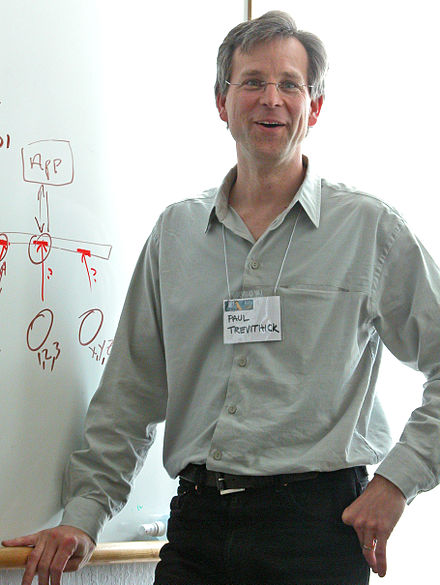 App
?
?
1,2,3
PAUL
TREVITHICK